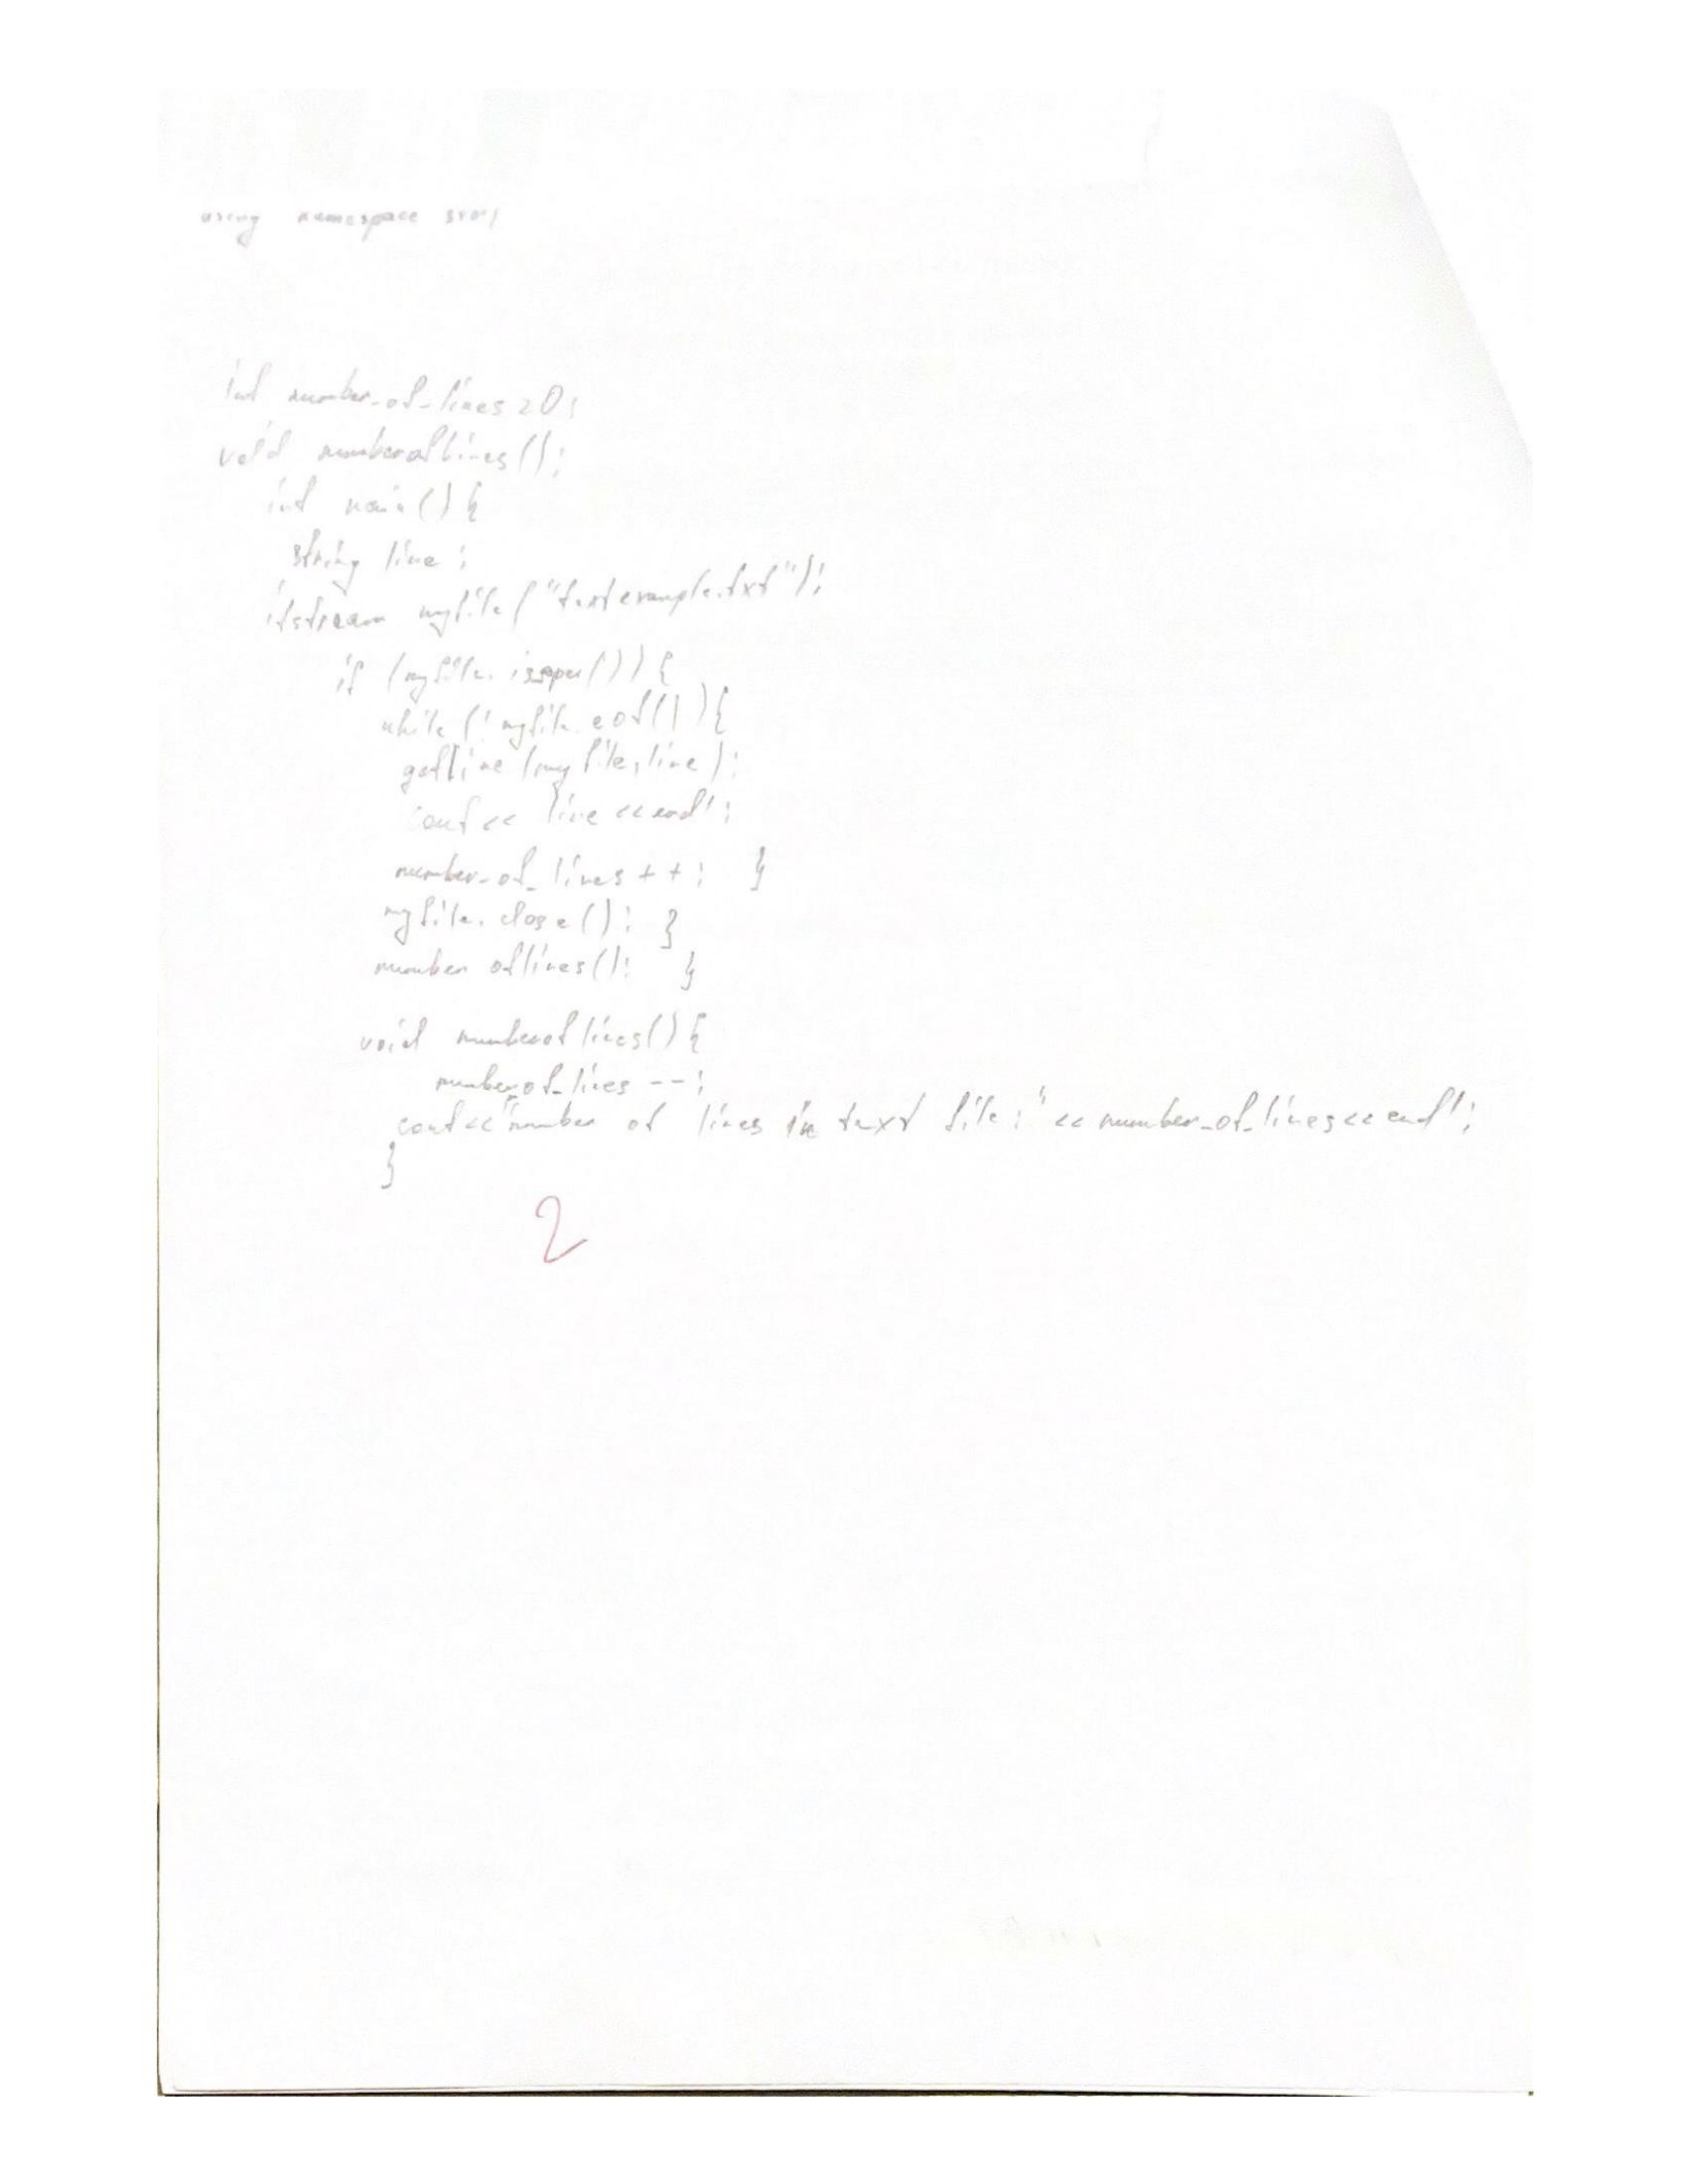 using namespace std;
int number_of_lines = 0;
void numberoflines();
int main() {
string line;
ifstream myfile ("textexample.txt");
if (myfile. isopen()) {
while (! myfile. eof()) {
getline (myfile, line);
cout << line << endl;
number_of_lines ++; }
myfile. close(); }
number oflines(); }
void numberoflines() {
number_of_lines --;
cout << "number of lines in text file: " << number_of_lines << endl;
}
2